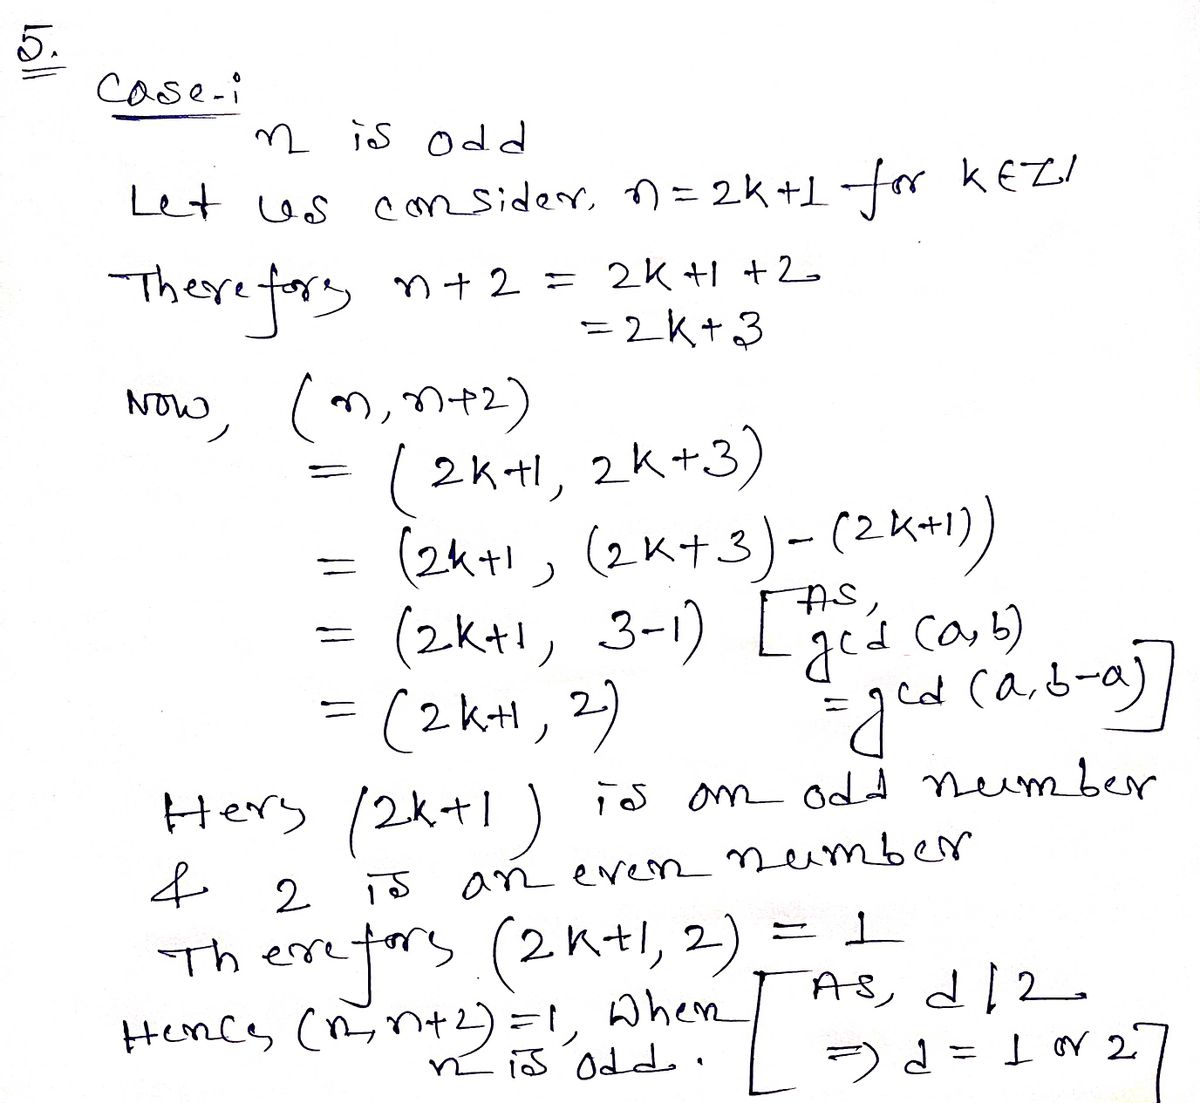 5.
Case-i
n is odd
Let us consider, n = 2k+1 for k ∈ Z
Therefore, n+2 = 2k+1+2
= 2k+3
Now, (n, n+2)
= (2k+1, 2k+3)
= (2k+1, (2k+3)-(2k+1))
= (2k+1, 3-1) [As, gcd (a,b)
= (2k+1, 2) = gcd (a, b-a)]
Here (2k+1) is an odd number
& 2 is an even number
Therefore (2k+1, 2) = 1
Hence (n, n+2) = 1, when [As, d|2
n is odd. => d = 1 or 2]